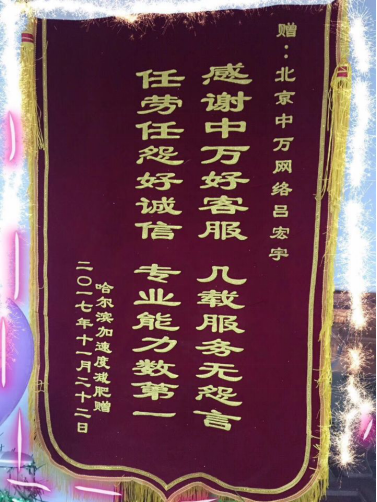 赠:北京中万网络吕宏宇
感谢中万好客服 几载服务无怨言
任劳任怨好诚信 专业能力数第一
哈尔滨加速度减肥赠
二〇一七年十一月二十二日